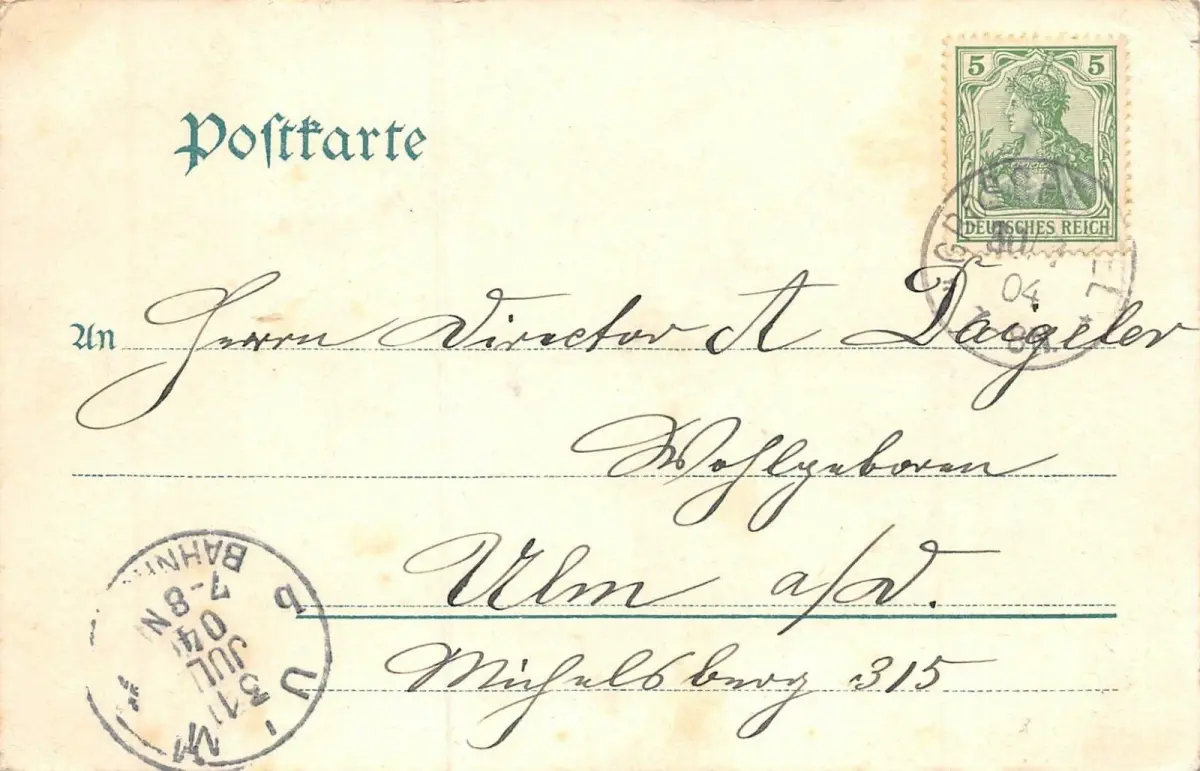 5 5
DEUTSCHES REICH
Postkarte
04
An Herrn Director A Daigeler
Wohlgeboren
Ulm a/D.
Michelsberg 315
ULM
31 JUL
04
7-8N
BAHNH